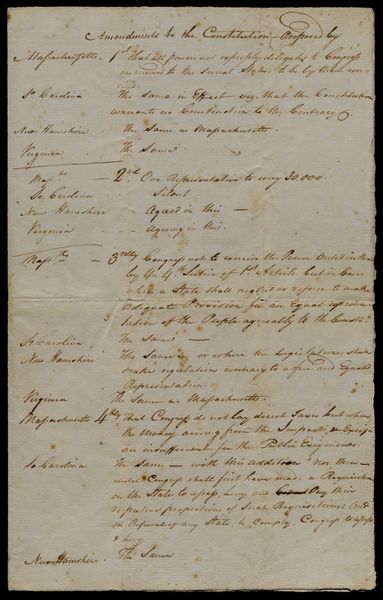 Amendments to the Constitution Proposed by
Massachusetts. 1st That all powers not expressly delegated to Congress
are reserved to the several States, to be by them exer-
cised
So Carolina The Same in Effect viz. that the Constitution
warrants no Construction to the Contrary
New Hamshire. The Same as Massachusetts.
Virginia The Same
Mass. ts 2nd One Representation to every 30.000.
So. Carolina Silent
New Hamshire Agreed in this —
Virginia Agreeing in this.
Mass. ts 3rdly Congress not to exercise the Power Vested in them
by the 4th Section of 1st Article but in Cases
when a State shall neglect or refuse to make
adequate Provision for an Equal represen-
tation of the People agreeably to the Consti:
So Carolina The Same —
New Hamshire The Same or where the Legislature shall
make regulation contrary to a free and Equal
Representation.
Virginia The Same as Massachusetts.
Massachusetts 4thly That Congress do not lay direct Taxes but when
the Money arising from the Impost & Excise
are insufficient for the Public Exigences.
So Carolina The Same, — with this addition Nor then —
until Congress shall first have made a Requisition
on the State to assess, Levy and Pay their
respective proportions of Such Requisitions:
on Refusal of any State, to Comply, Congress to assess
& Levy
New Hamshire. The Same